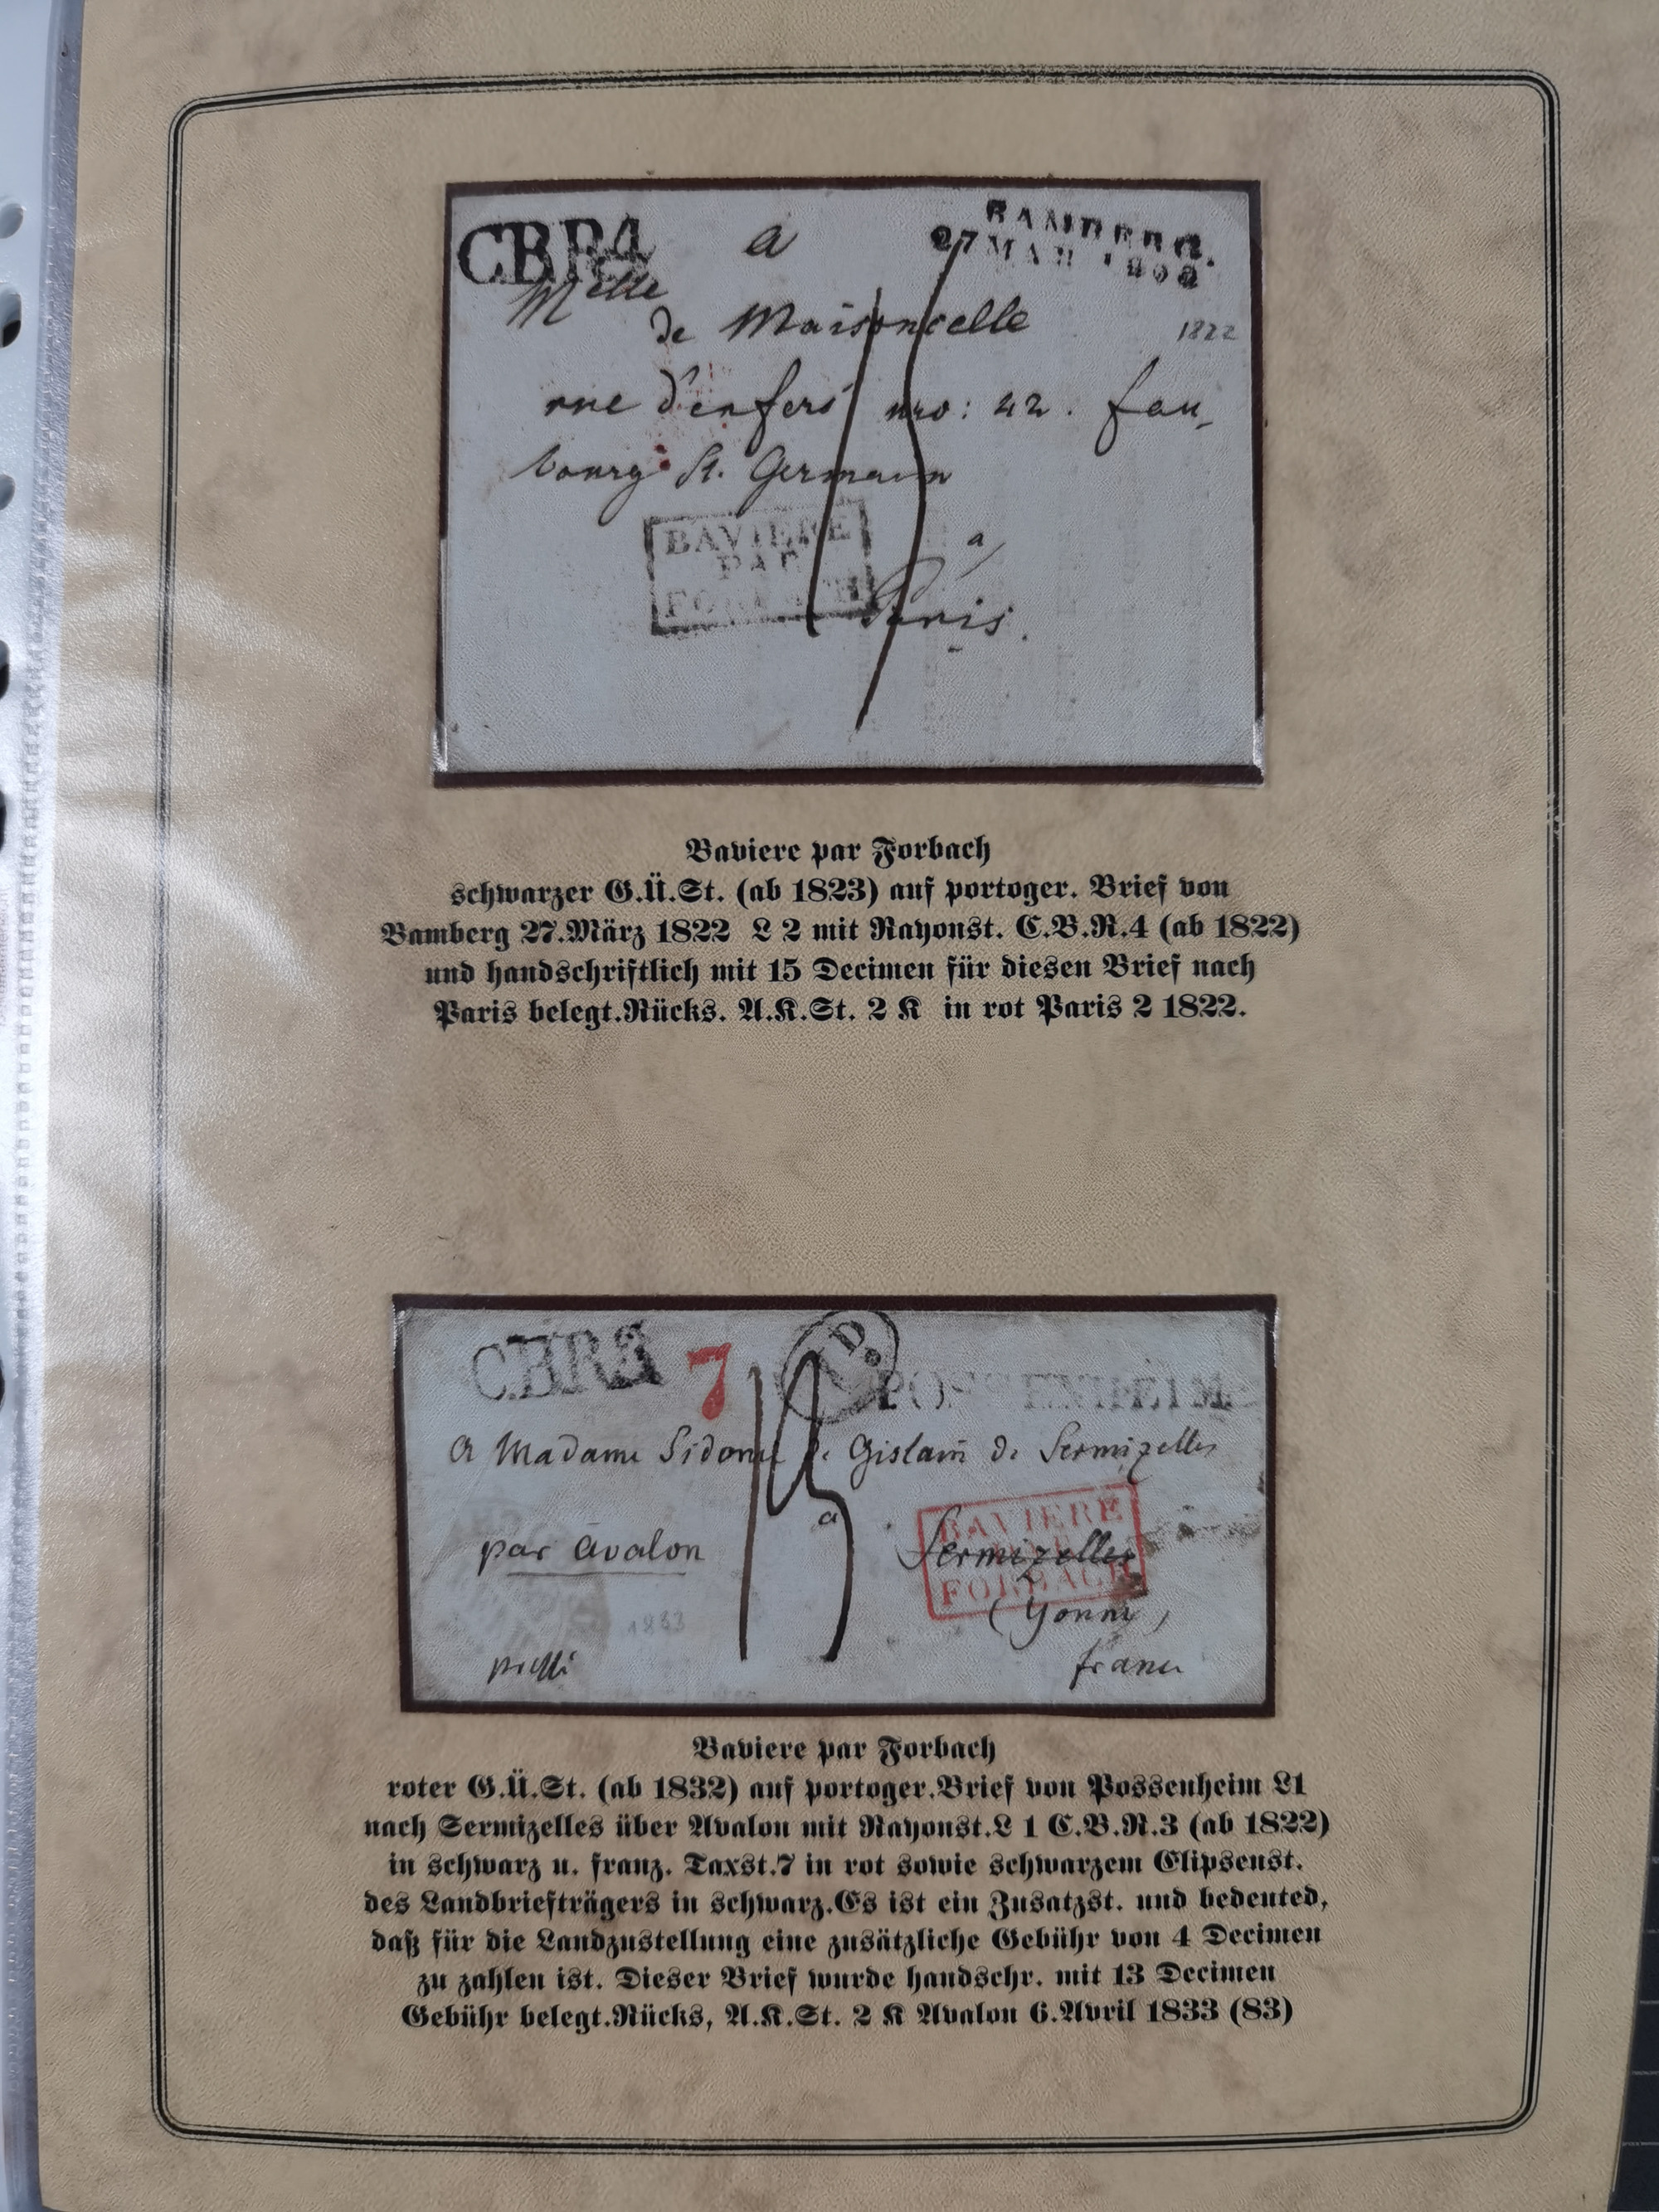 CBR4
a
BAMBERG.
27 MAR 1822
Melle
de Maisoncelle
1822
rue d'enfers nro: 42. fau-
bourg St. Germain
BAVIERE
PAR
FORBACH
15
a
Paris.
Baviere par Forbach
schwarzer G.Ü.St. (ab 1823) auf portoger. Brief von
Bamberg 27.März 1822 L 2 mit Rayonst. C.B.R.4 (ab 1822)
und handschriftlich mit 15 Decimen für diesen Brief nach
Paris belegt.Rücks. A.K.St. 2 K in rot Paris 2 1822.
CBR3
7
D.
POSSENHEIM
13
A Madame Sidonie de Gislain de Sermizelles
a
par Avalon
Sermizelles
BAVIERE
PAR
FORBACH
(Yonne)
1833
pressé
france
Baviere par Forbach
roter G.Ü.St. (ab 1832) auf portoger.Brief von Possenheim L1
nach Sermizelles über Avalon mit Rayonst.L 1 C.B.R.3 (ab 1822)
in schwarz u. franz. Taxst.7 in rot sowie schwarzem Elipsenst.
des Landbriefträgers in schwarz.Es ist ein Zusatzst. und bedeuted,
daß für die Landzustellung eine zusätzliche Gebühr von 4 Decimen
zu zahlen ist. Dieser Brief wurde handschr. mit 13 Decimen
Gebühr belegt.Rücks, A.K.St. 2 K Avalon 6.Avril 1833 (83)